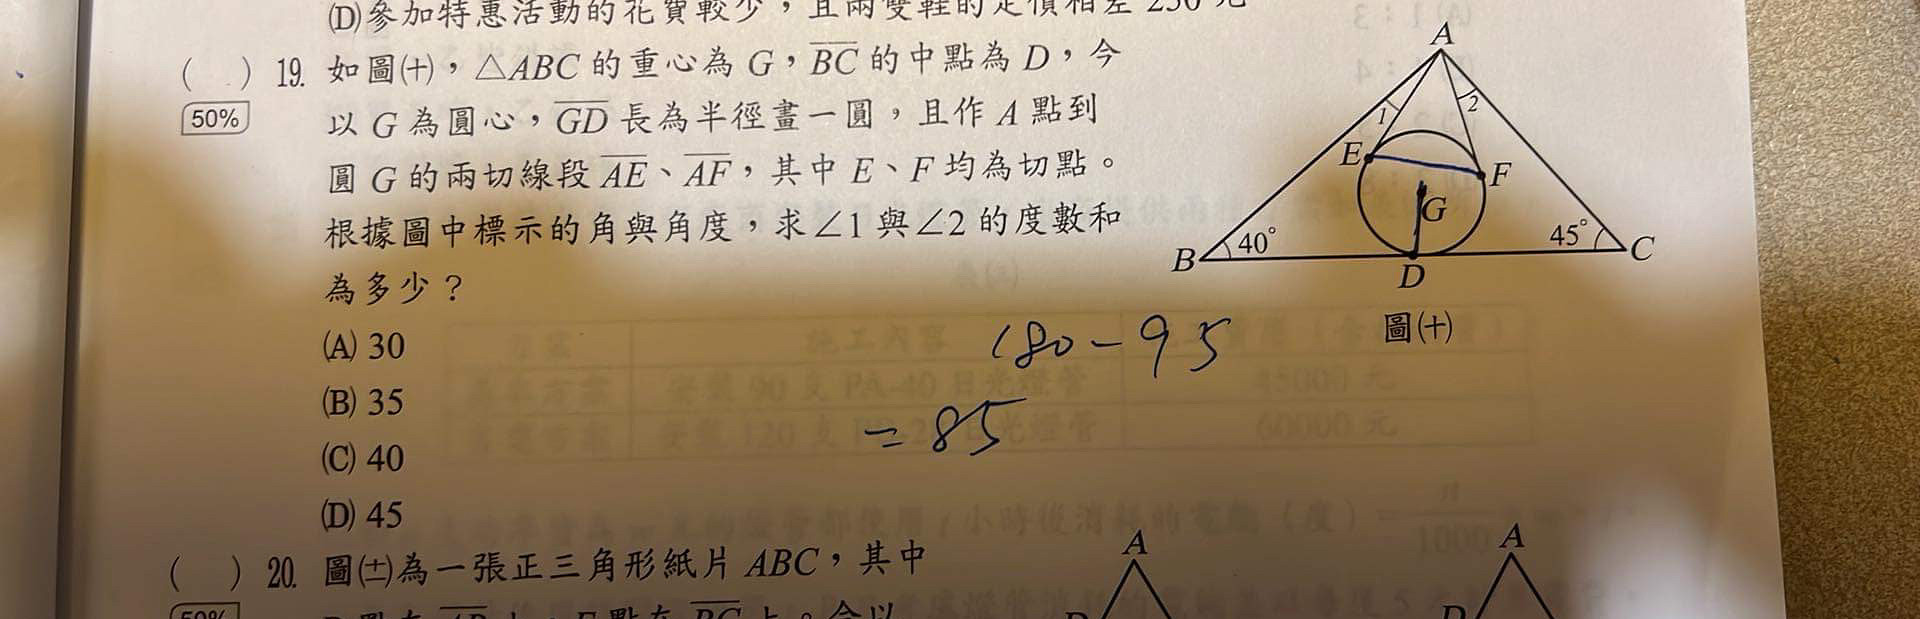 (D)參加特惠活動的花費較少，且兩雙鞋的定價相差 250 元
(　) 19. 如圖(十)，△ABC 的重心為 G，BC 的中點為 D，今
50% 以 G 為圓心，GD 長為半徑畫一圓，且作 A 點到
圓 G 的兩切線段 AE、AF，其中 E、F 均為切點。
根據圖中標示的角與角度，求∠1 與∠2 的度數和
為多少？
(A) 30
(B) 35
(C) 40
(D) 45
A
1 2
E F
G
B 40° 45° C
D
圖(十)
180-95
=85
(　) 20. 圖(士)為一張正三角形紙片 ABC，其中
50%
A A
D D